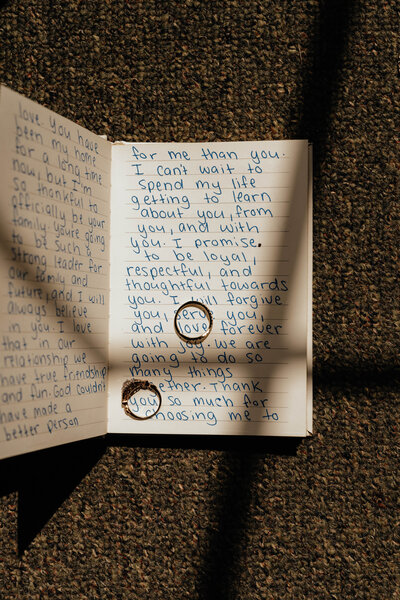 love you. you have
been my home
for a long time
now, but I'm
so thankful to
officially be your
family. you're going
to be such a
strong leader for
our family and
future, and I will
always believe
in you. I love
that in our
relationship we
have true friendship
and fun. God couldn't
have made a
better person
for me than you.
I can't wait to
spend my life
getting to learn
about you, from
you, and with
you. I promise.
to be loyal,
respectful, and
thoughtful towards
you. I will forgive
you, serve you,
and love forever
with joy. we are
going to do so
many things
together. Thank
you so much for
choosing me to